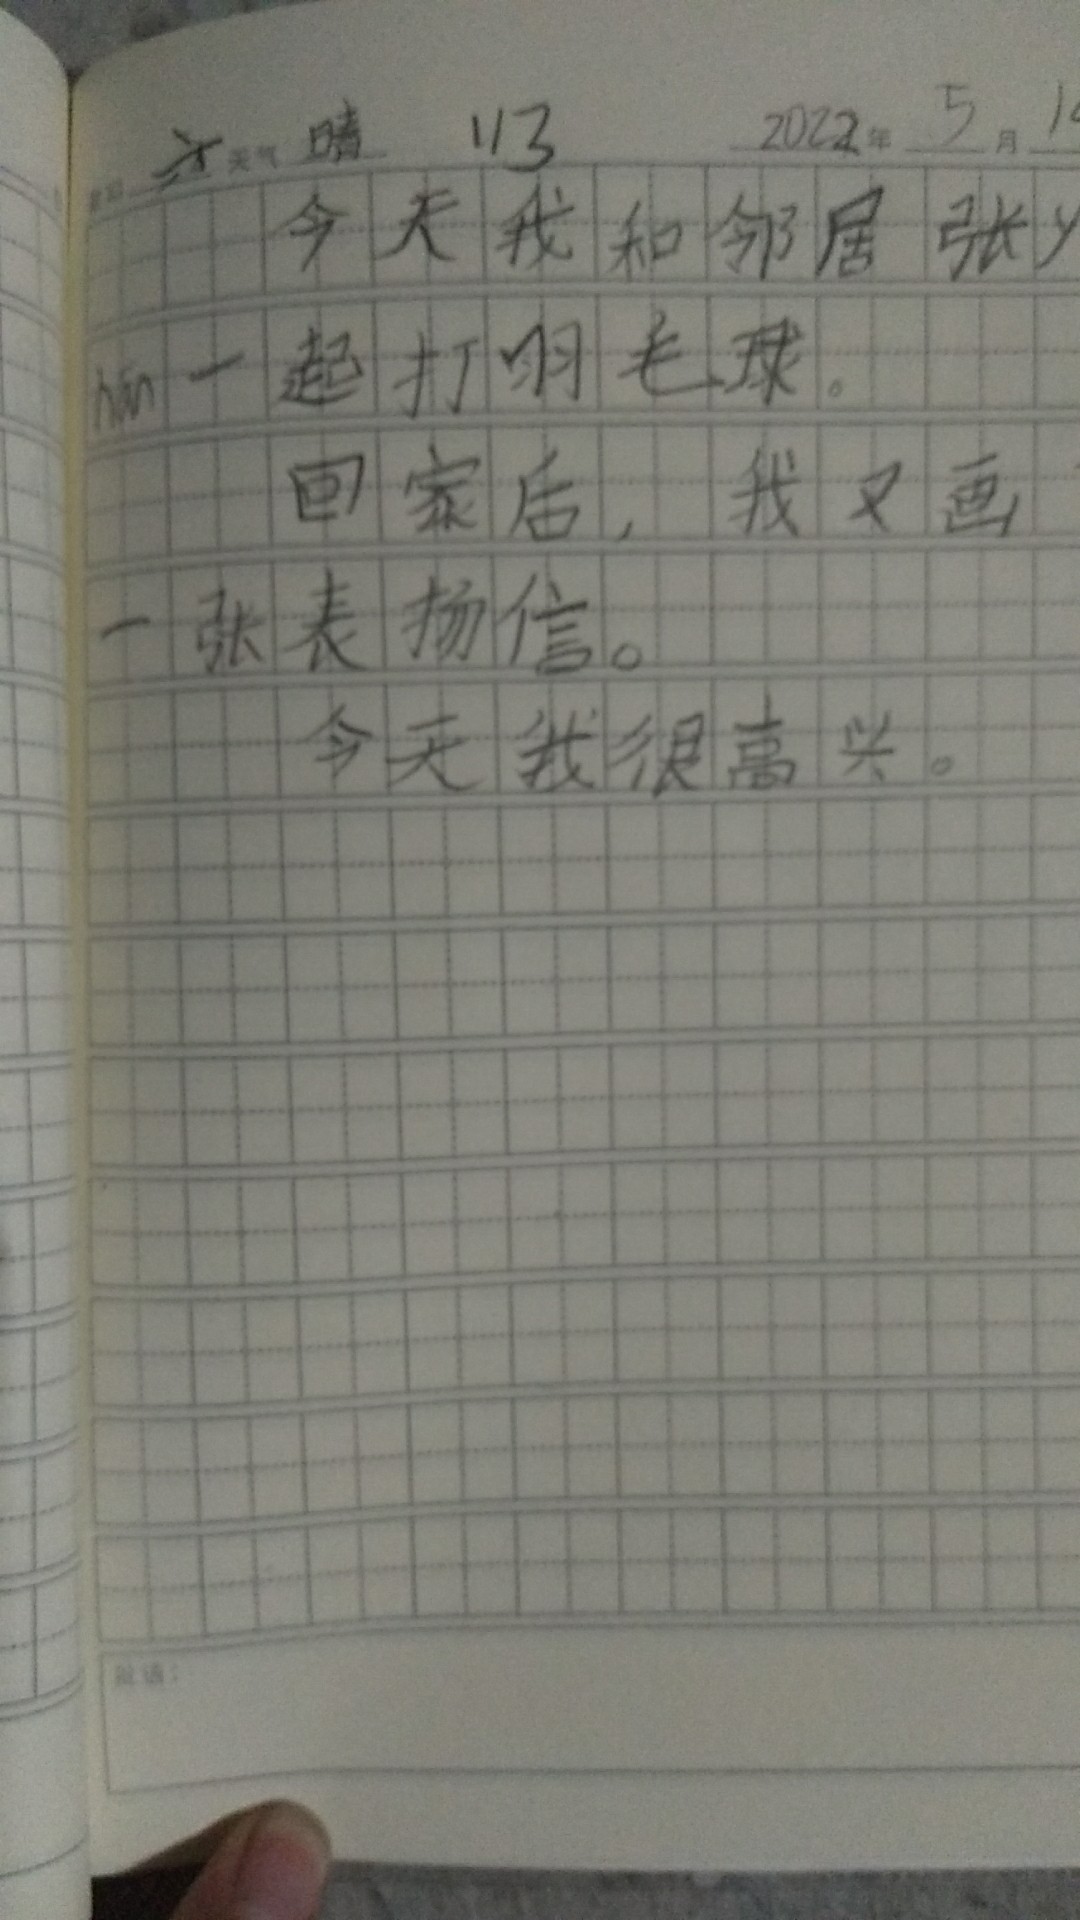 天气 晴 113 2022年 5月 1
今天我和邻居张y
一起打羽毛球。
回家后,我又画
一张表扬信。
今天我很高兴。
评语: